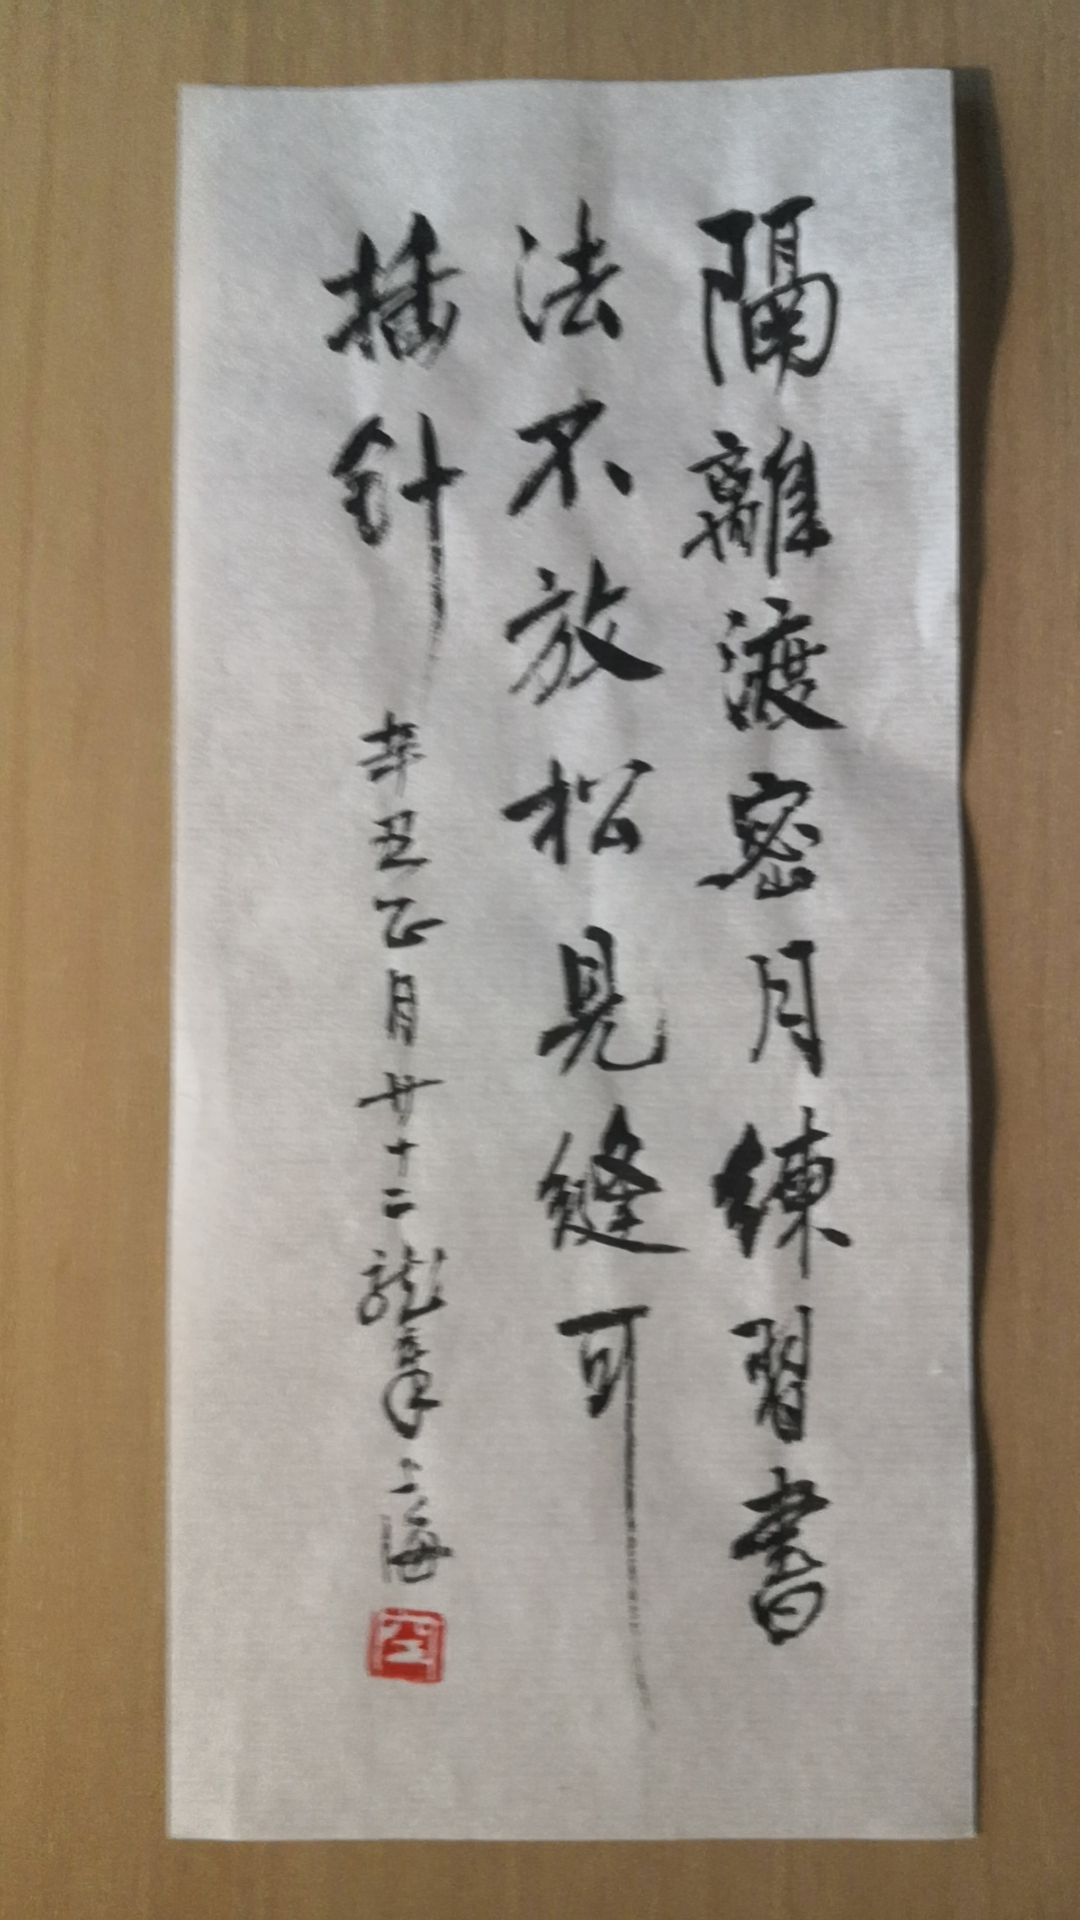 隔離渡密月練習書
法不放松見縫可
插針
辛丑正月廿十二龍章上海